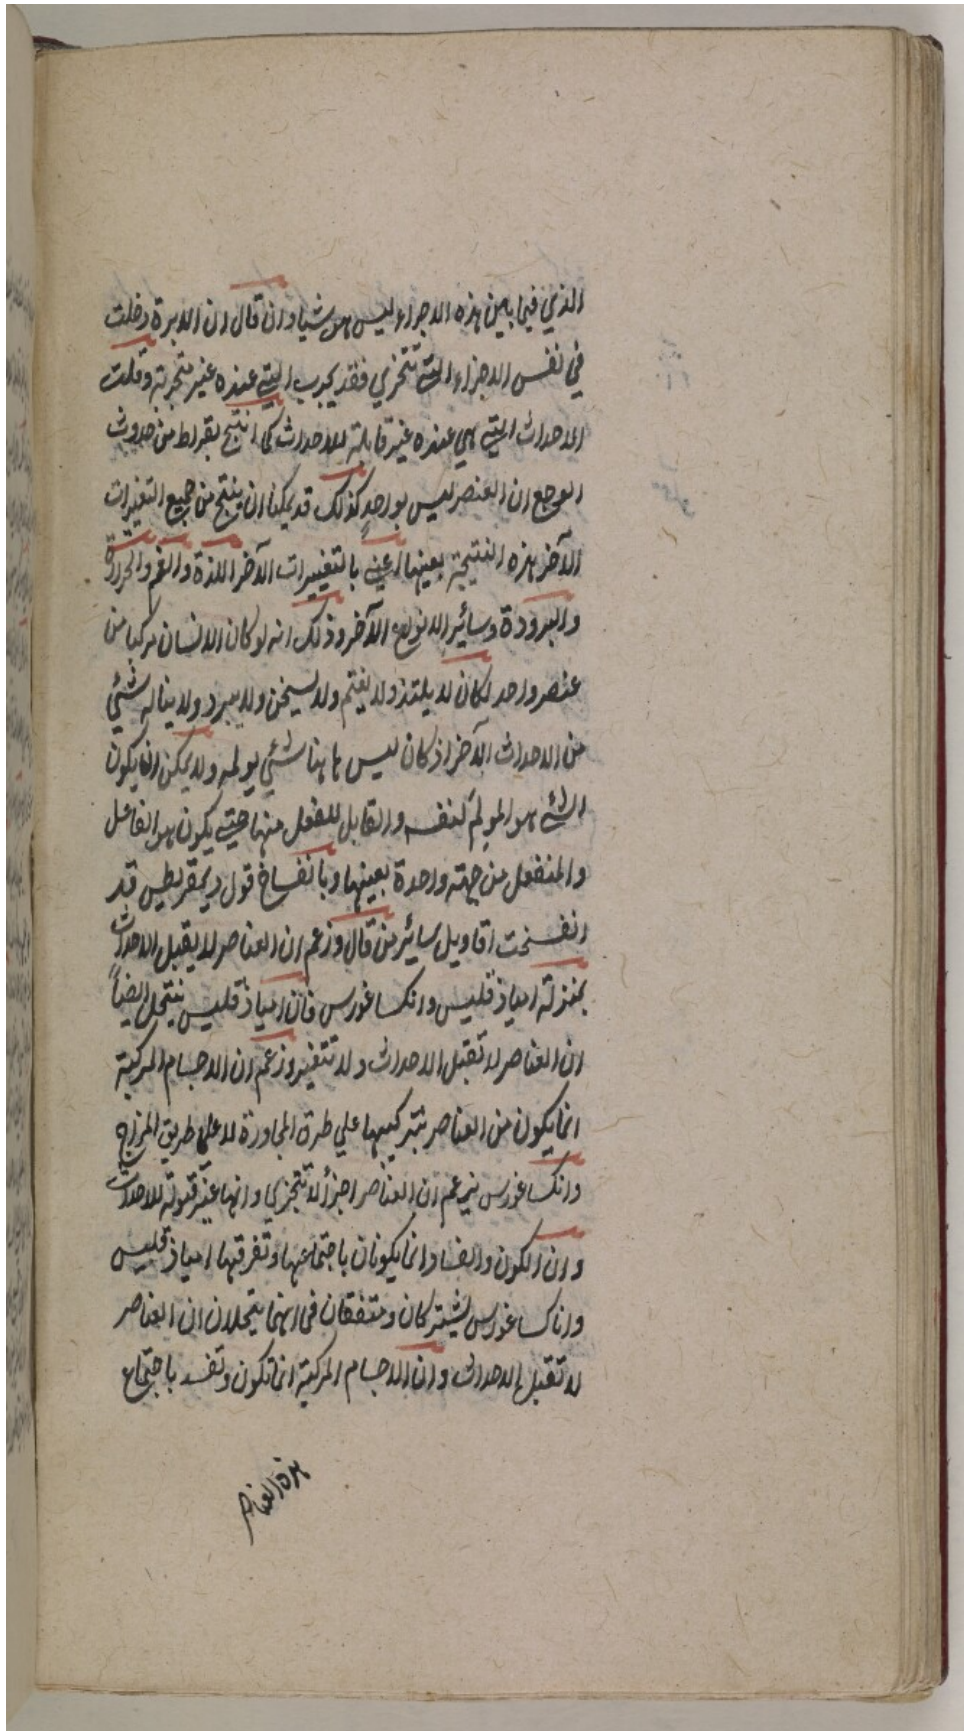 الذي فيما بين هذه الاجزاء ليس هو شيا وان قال ان الابرة دخلت
في نفس الاجزاء التي تتجزي فقد يجرب التي عنده غير متجزية وقلت
الاحداث التي هي عنده غير قابلة للاحداث كما انتج بقراط من حدوث
الوجع ان العنصر ليس بواحد كذلك قد يمكنا ان ينتج من جميع التغيرات
الآخر هذه النتيجة بعينها اعني بالتغييرات الآخر اللذة والغم والحرارة
والبرودة وسائر الانواع الآخر وذلك انه لو كان الانسان مركبا من
عنصر واحد لكان لا يلتذ ولا يغتم ولا يسخن ولا يبرد ولا يناله شئي
من الاحداث الآخر اذ كان ليس هاهنا شئي يولمه ولا يمكن ان يكون
الشئ هو المولم لنفسه والقابل للفعل منها حتي يكون هو الفاعل
والمنفعل من جهة واحدة بعينها وبانفساخ قول ديمقريطيس قد
انفسخت اقاويل سائر من قال وزعم ان العناصر لا يقبل الاحداث
بمنزلة امياذقليس وانكساغورس فان امياذقليس ينتحل ايضاً
ان العناصر لا تقبل الاحداث ولا تتغير وزعم ان الاجسام المركبة
انما يكون من العناصر بتركيبها علي طرق المجاورة لا علي طريق المزاج
وانكساغورس يزعم ان العناصر اجزأ لا تتجزي وانها غير قبولة للاحداث
وان الكون والفساد انما يكونان باجتماعها وتفرقها امياذقليس
واناكساغورس يشتركان ومتفقان في انهما ينتحلان ان العناصر
لا تقبل الاحداث وان الاجسام المركبة انما تكون وتفسد باجتماع
هذه العناصر